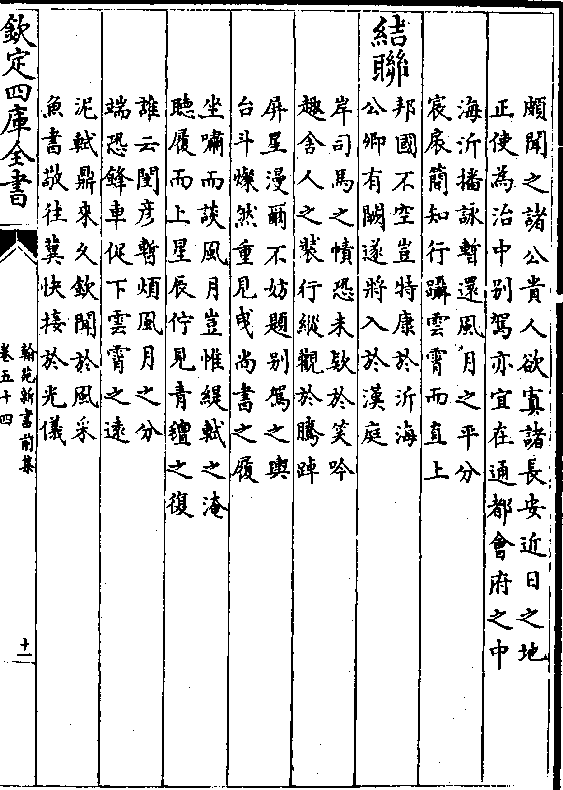 頗聞之諸公貴人欲寘諸長安近日之地
正使為治中别駕亦宜在通都會府之中
海沂播詠暫還風月之平分
宸扆簡知行躡雲霄而直上
結聯
邦國不空豈特康於沂海
公卿有闕遂將入於漢庭
岸司馬之幘恐未欵於笑吟
趣舍人之裝行縱觀於騰踔
屛星漫爾不妨題别駕之輿
台斗燦然重見曳尚書之履
坐嘯而談風月豈惟緹軾之淹
聴履而上星辰佇見青氊之復
誰云閏彦暫煩風月之分
端恐鋒車促下雲霄之遠
泥軾鼎來久欽聞於風采
魚書敬往冀快接於光儀
欽定四庫全書
翰苑新書前集
卷五十四
十一